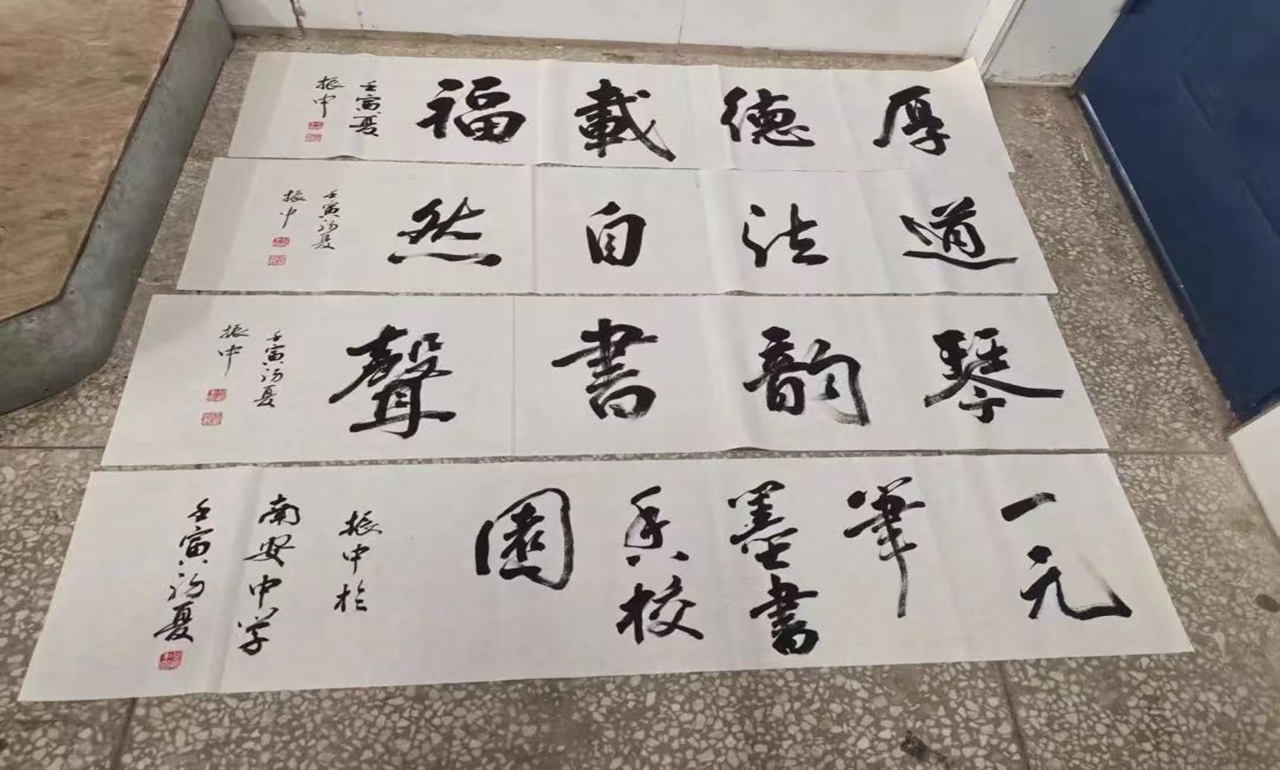 厚德載福
壬寅夏
振中
道法自然
壬寅初夏
振中
琴韵書聲
壬寅初夏
振中
一元
筆
墨書
香校
園
振中於
南安中学
壬寅初夏